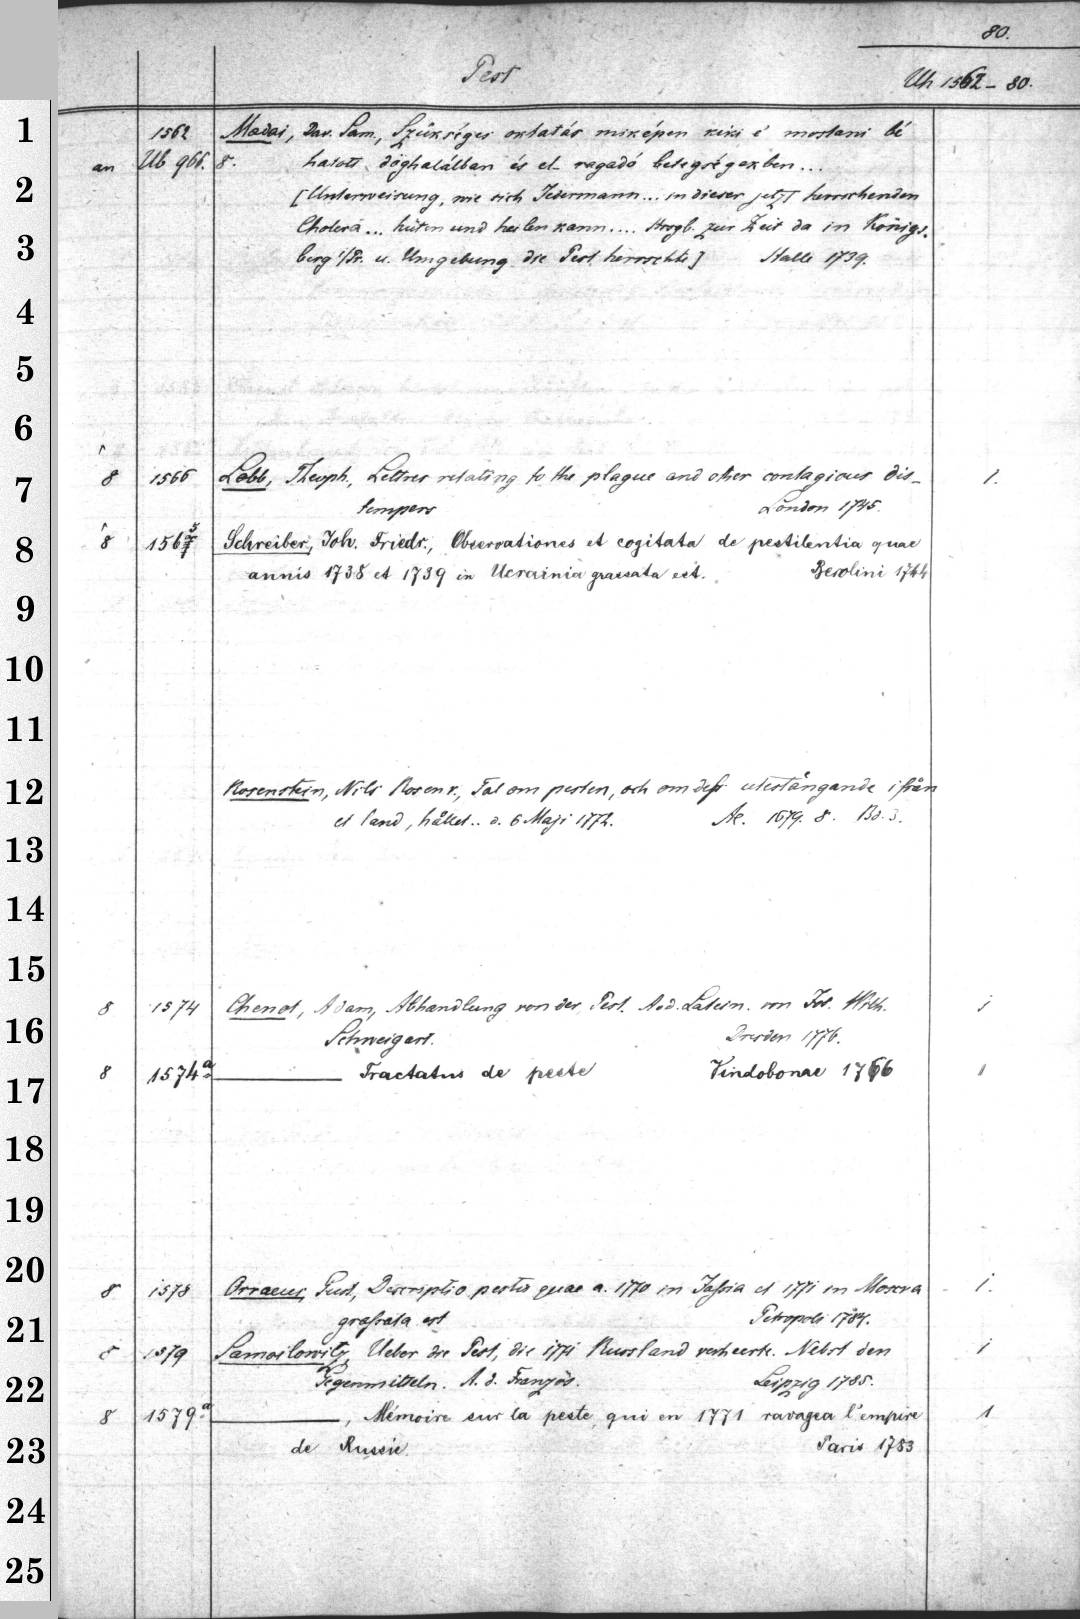 80.
Pest
Uh 1562-80.
1 1562 Madai, Dav. Sam., Szükséges oktatás miképen kiki é mostani bé
an Ub 966. 8. hatott döghalálban és el-ragadó betegségekben...
2 [Unterweisung, wie sich Jedermann... in dieser jetzt herrschenden
3 Cholera... hüten und heilen kann.... Hrsgb. zur Zeit da in Königs-
berg i/Pr. u. Umgebung die Pest herrschte] Halle 1739.
4
5
6
7 8 1566 Lobb, Theoph., Letters relating to the plague and other contagious dis- 1.
tempers London 1745.
8 8 1565 Schreiber, Joh. Friedr., Observationes et cogitata de pestilentia quae
annis 1738 et 1739 in Ucrainia grassata est. Berolini 1744
9
10
11
12 Rosenstein, Nils Rosen v., Tal om pesten, och om dess utestängande ifrån
et land, hållet.. d. 6 Maji 1772. Ac. 1679. 8. Bd. 3.
13
14
15
16 8 1574 Chenot, Adam, Abhandlung von der Pest. A. d. Latein. von Jos. Wilh. 1
Schweigart. Dresden 1776.
17 8 1574a ——— Tractatus de peste Vindobonae 1766 1
18
19
20 8 1578 Orraeus, Gust., Descriptio pestis quae a. 1770 in Jassia et 1771 in Moscva 1.
21 grassata est Petropoli 1784.
8 1579 Samoilowitz, Ueber die Pest, die 1771 Russland verheerte. Nebst den 1
22 Gegenmitteln. A. d. Französ. Leipzig 1785.
8 1579a ———, Mémoire sur la peste, qui en 1771 ravagea l'empire 1
23 de Russie Paris 1783
24
25